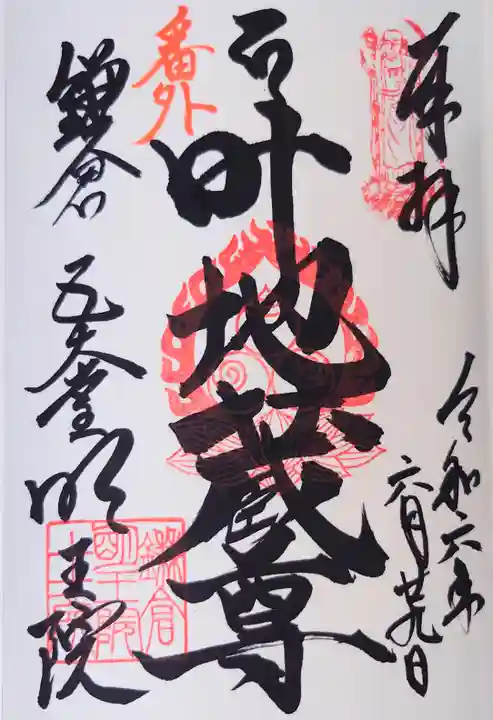 奉拝
令和六年
六月廿九日
叶地蔵尊
番外
鎌倉 五大堂明王院
鎌倉
明王院